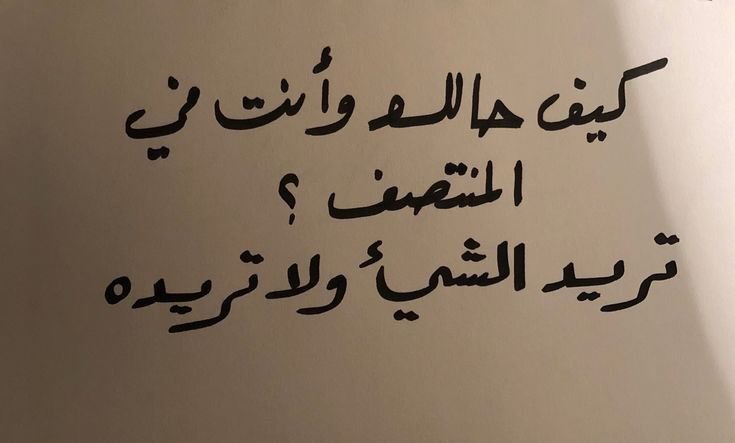 كيف حالك وأنت في
المنتصف ؟
تريد الشيئ ولا تريده